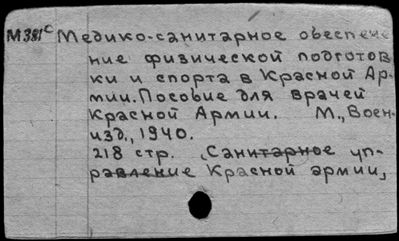 М381с Медико-санитарное обеспече
ние физической подготов
ки и спорта в Красной Ар-
мии. Пособие для врачей
Красной Армии. М., Воен-
изд., 1940.
218 стр. (Санитарное уп-
равление Красной армии,